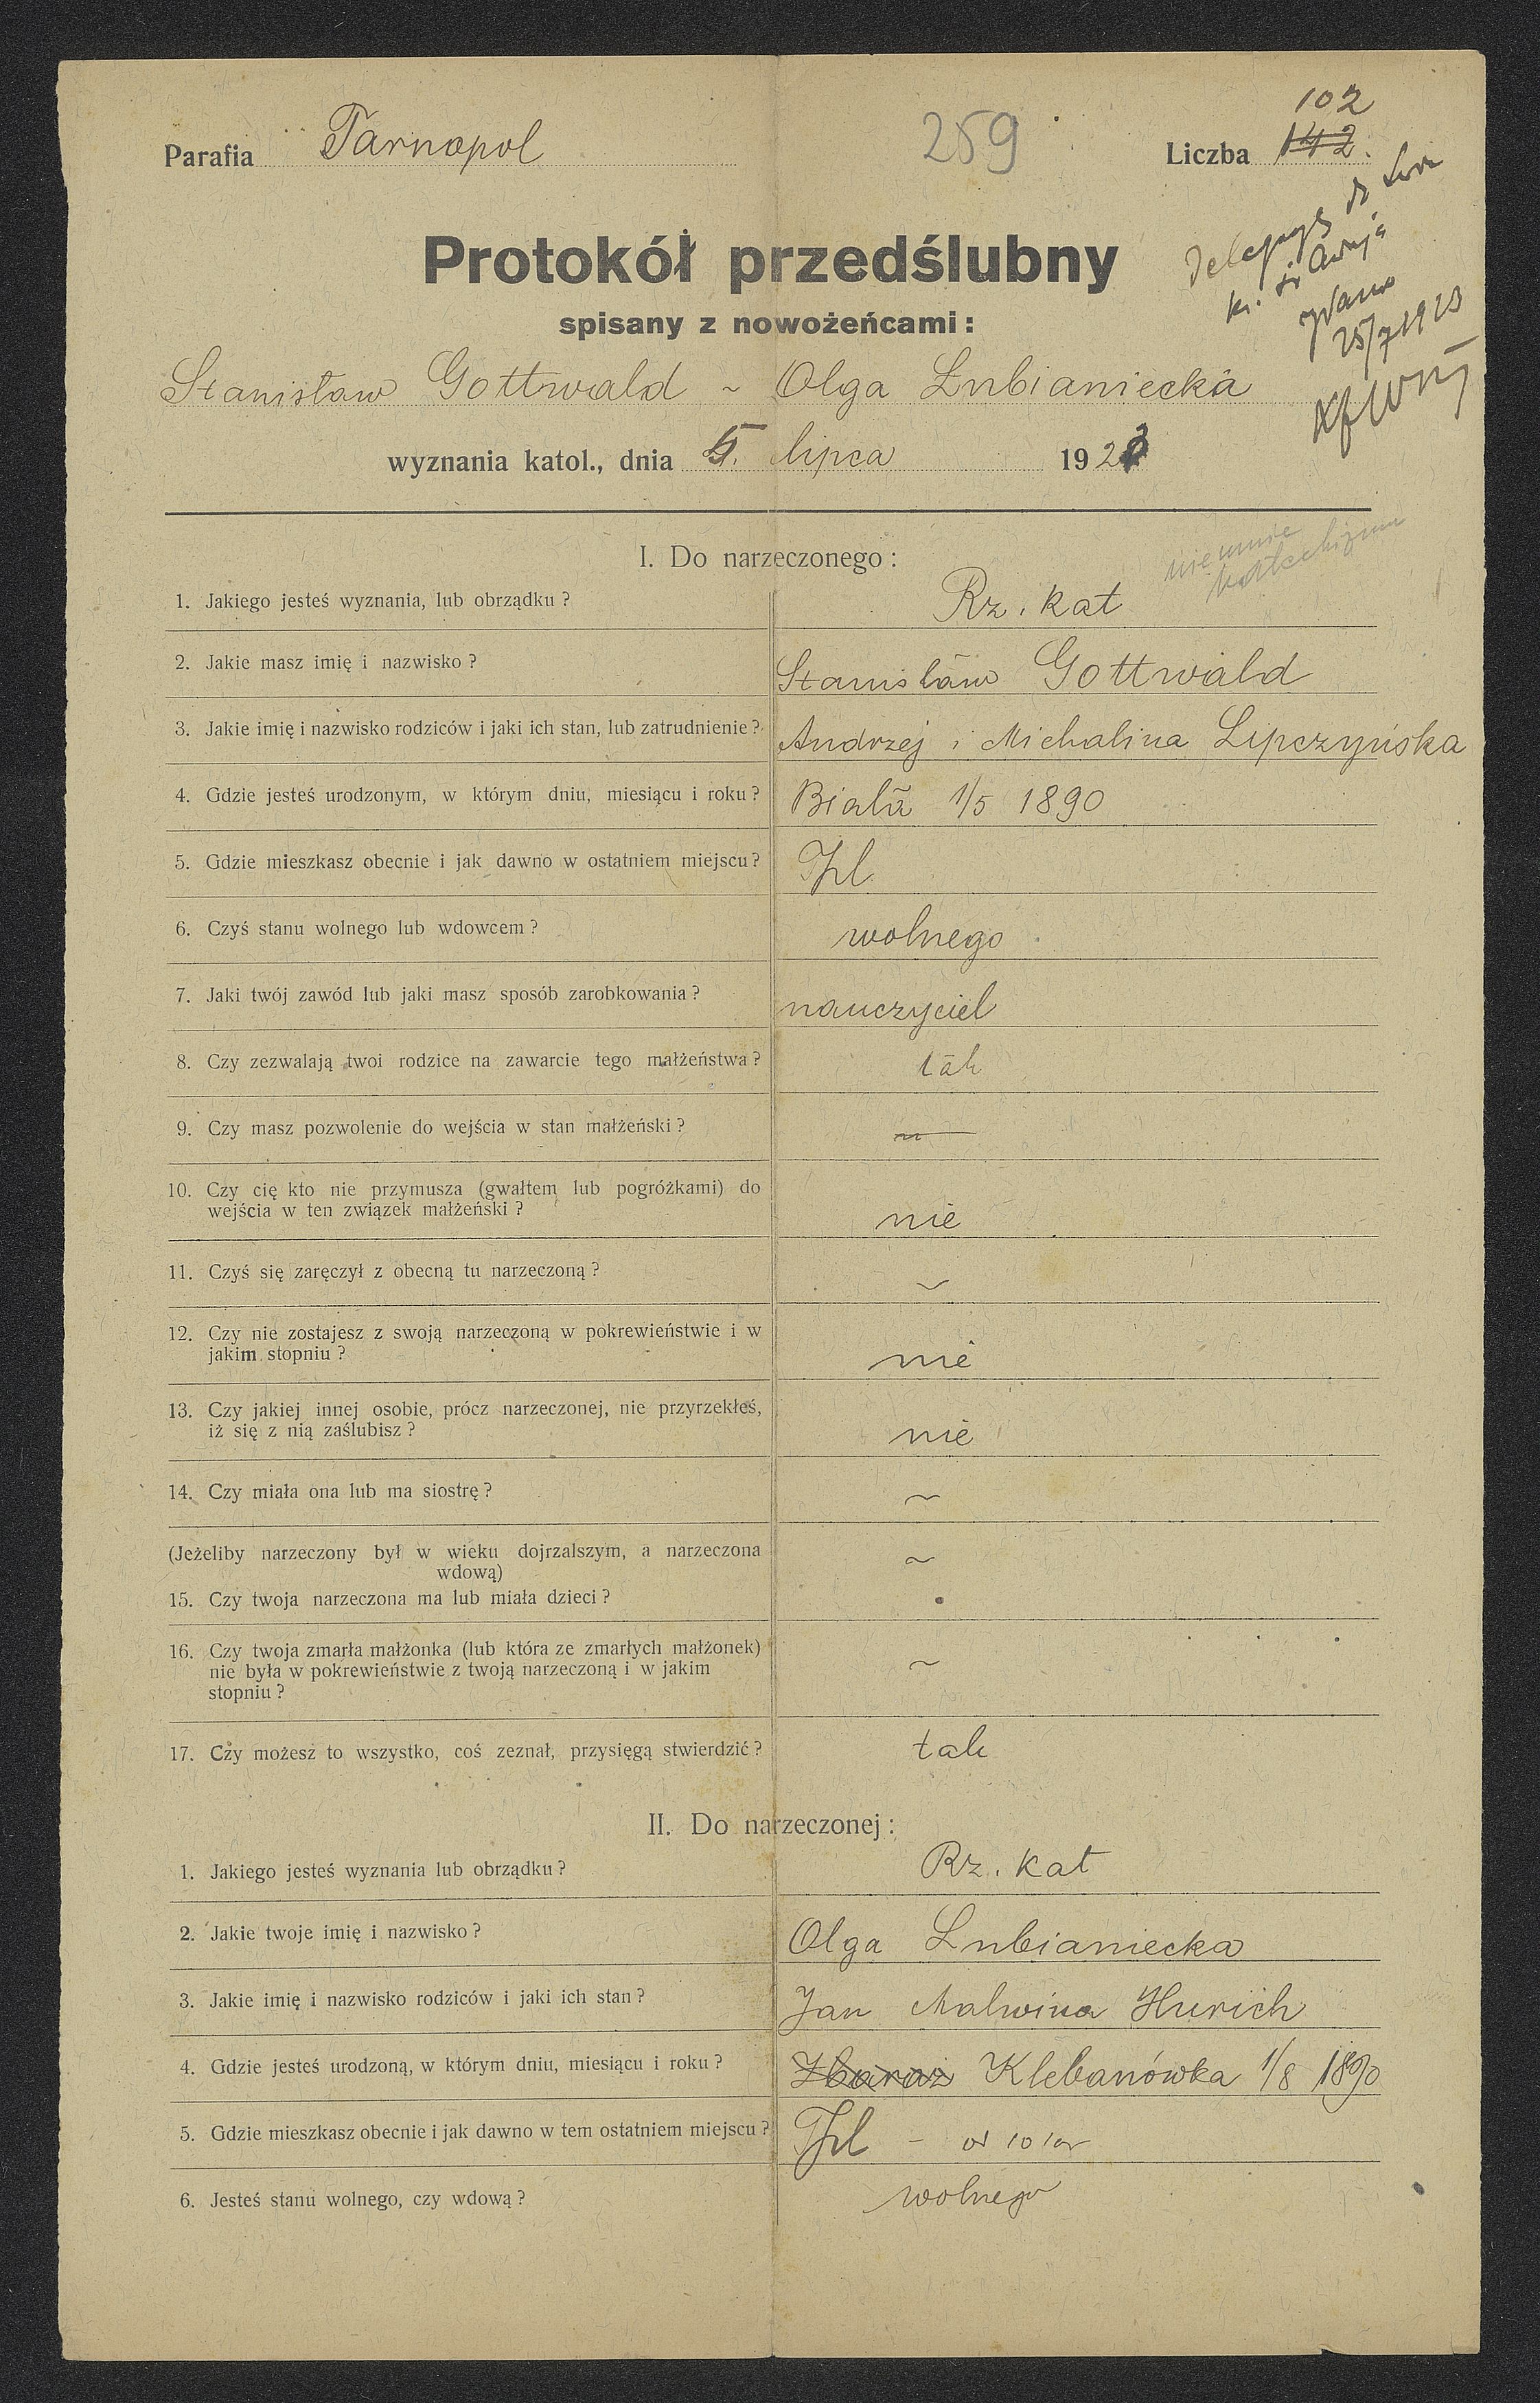 102
Parafia Tarnopol 259 Liczba 142.
Protokół przedślubny
spisany z nowożeńcami:
25/7 1923
Stanisław Gottwald ~ Olga Lubianiecka
wyznania katol., dnia 5. lipca 1923
I. Do narzeczonego:
nie umie
katechizmu
1. Jakiego jesteś wyznania, lub obrządku? Rz. kat
2. Jakie masz imię i nazwisko? Stanisław Gottwald
3. Jakie imię i nazwisko rodziców i jaki ich stan, lub zatrudnienie? Andrzej i Michalina Lipczyńska
4. Gdzie jesteś urodzonym, w którym dniu, miesiącu i roku? Biała 1/5 1890
5. Gdzie mieszkasz obecnie i jak dawno w ostatniem miejscu? Tpl
6. Czyś stanu wolnego lub wdowcem? wolnego
7. Jaki twój zawód lub jaki masz sposób zarobkowania? nauczyciel
8. Czy zezwalają twoi rodzice na zawarcie tego małżeństwa? tak
9. Czy masz pozwolenie do wejścia w stan małżeński? —
10. Czy cię kto nie przymusza (gwałtem lub pogróżkami) do
wejścia w ten związek małżeński? nie
11. Czyś się zaręczył z obecną tu narzeczoną? ~
12. Czy nie zostajesz z swoją narzeczoną w pokrewieństwie i w
jakim stopniu? nie
13. Czy jakiej innej osobie, prócz narzeczonej, nie przyrzekłeś,
iż się z nią zaślubisz? nie
14. Czy miała ona lub ma siostrę? ~
(Jeżeliby narzeczony był w wieku dojrzalszym, a narzeczona
wdową) ~
15. Czy twoja narzeczona ma lub miała dzieci?
16. Czy twoja zmarła małżonka (lub która ze zmarłych małżonek)
nie była w pokrewieństwie z twoją narzeczoną i w jakim ~
stopniu?
17. Czy możesz to wszystko, coś zeznał, przysięgą stwierdzić? tak
II. Do narzeczonej:
1. Jakiego jesteś wyznania lub obrządku? Rz. kat
2. Jakie twoje imię i nazwisko? Olga Lubianiecka
3. Jakie imię i nazwisko rodziców i jaki ich stan? Jan Malwina Hurich
4. Gdzie jesteś urodzoną, w którym dniu, miesiącu i roku? Zbaraż Klebanówka 1/8 1890
5. Gdzie mieszkasz obecnie i jak dawno w tem ostatniem miejscu? Tpl – od 10 lat
6. Jesteś stanu wolnego, czy wdową? wolnego